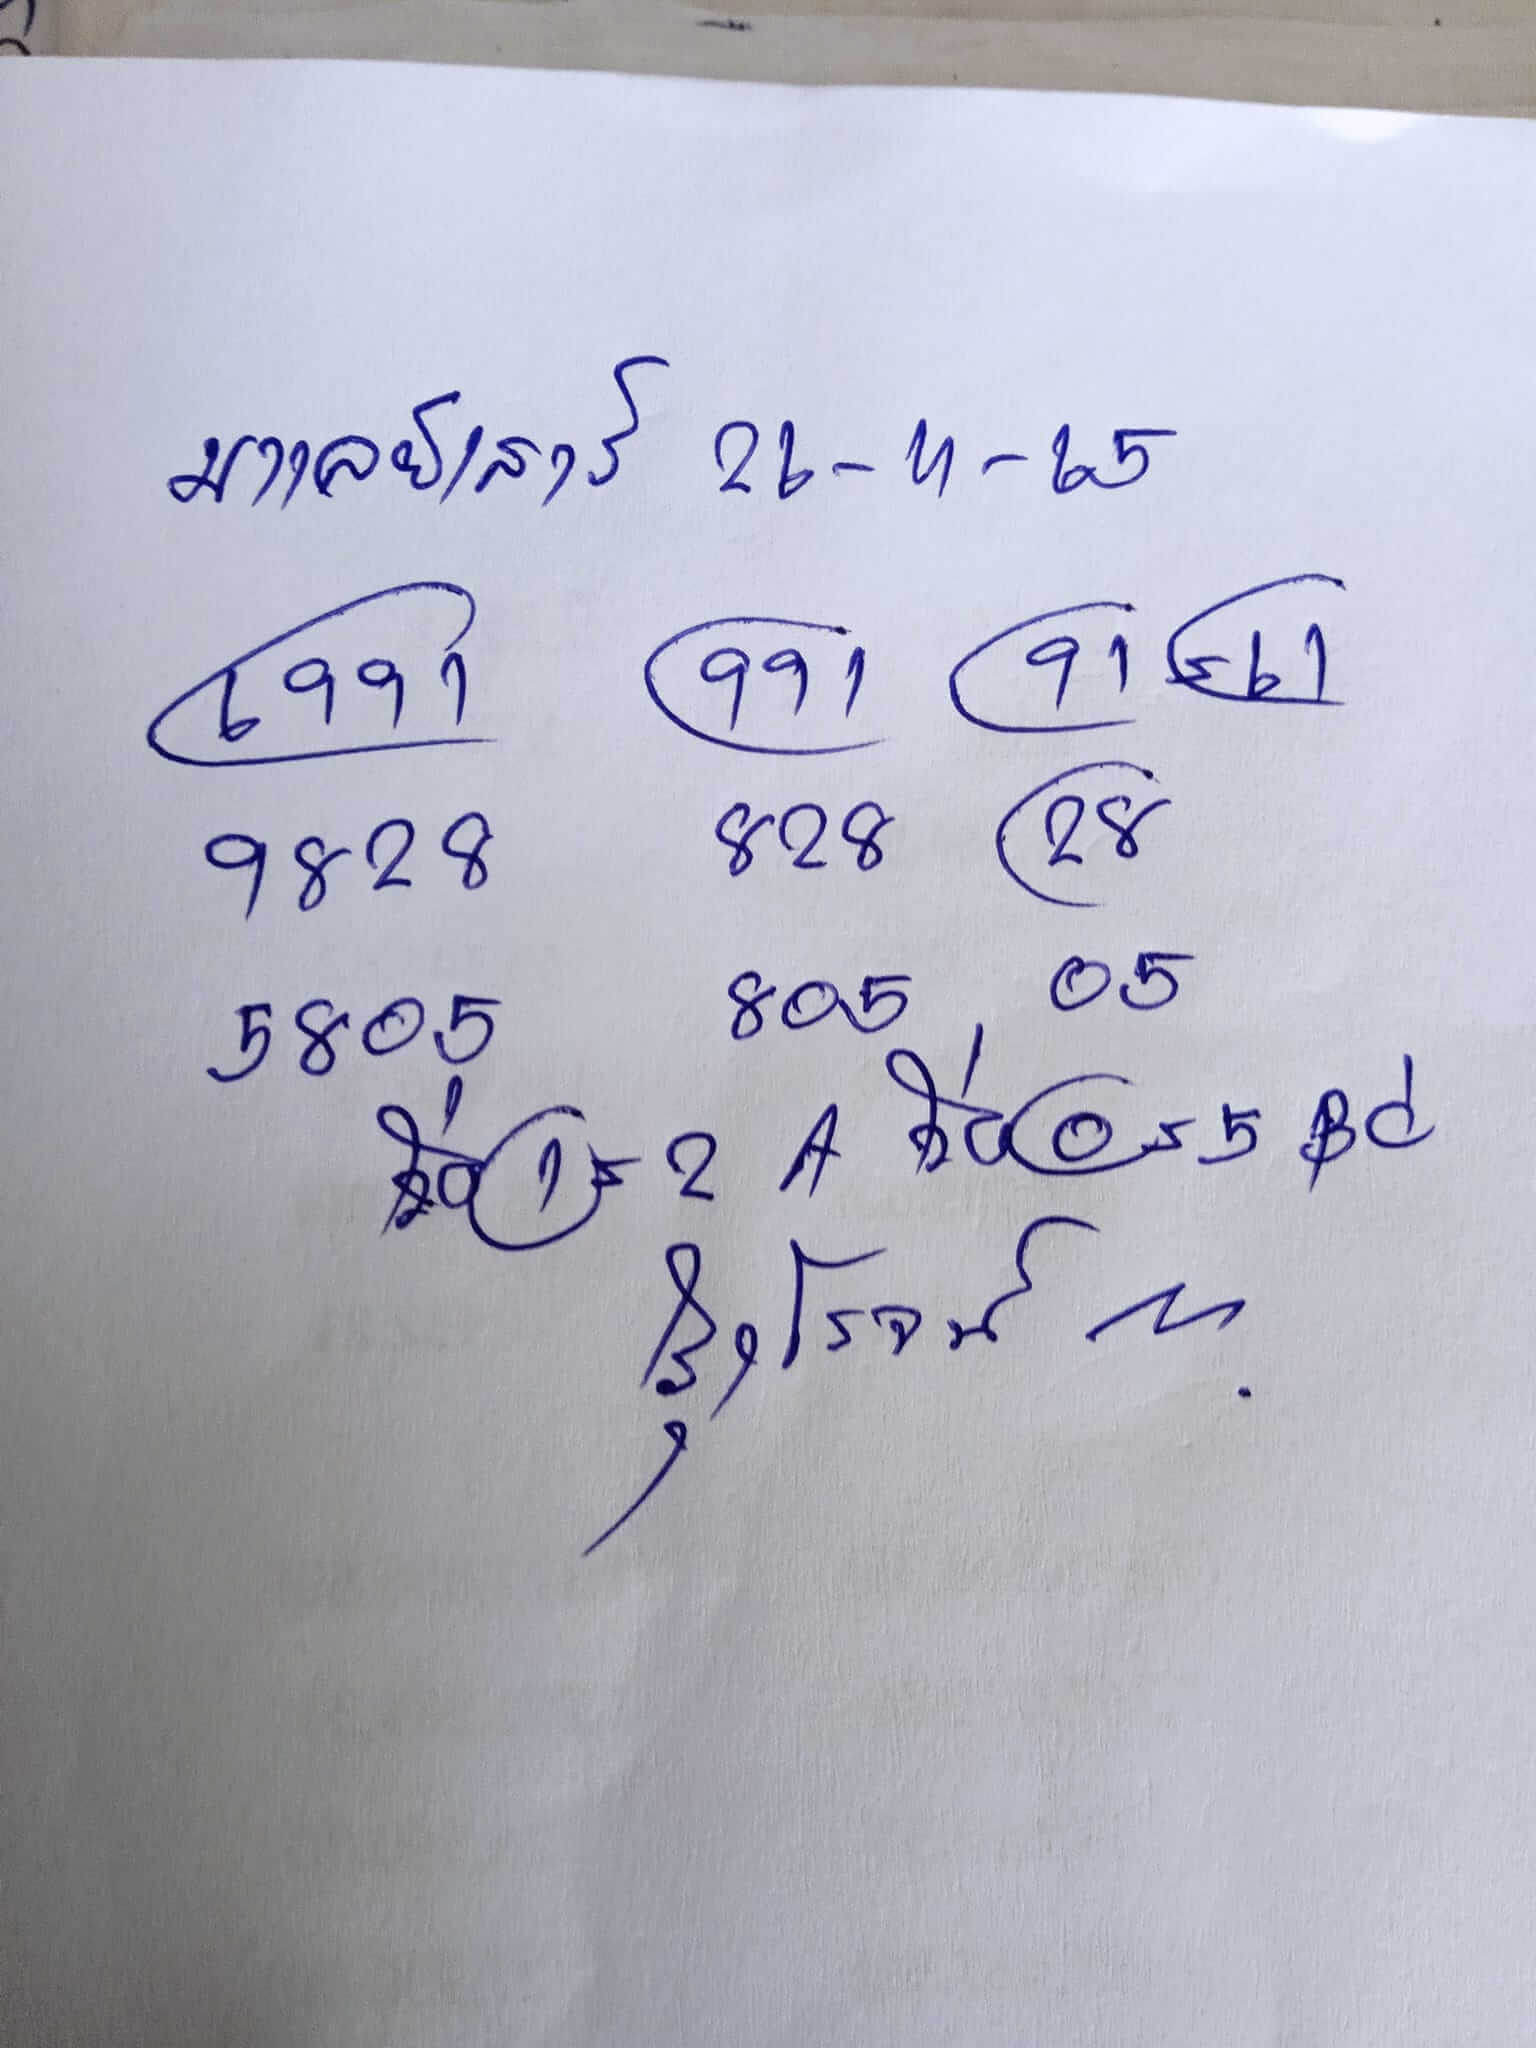 มาเลย์เสาร์ 26-11-65
6991 991 91 ระ 61
9828 828 28
5805 805 05
1 ร 2 A 0 ร 5 BC
โรจน์